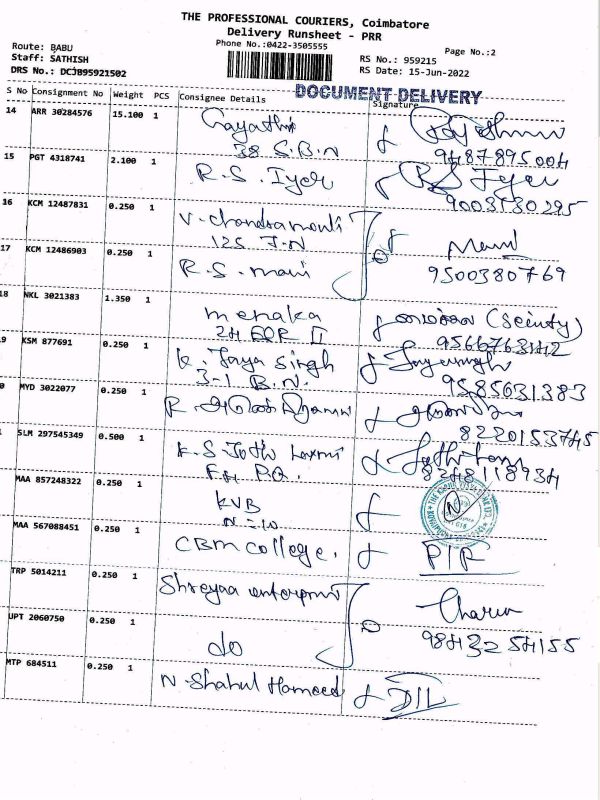 THE PROFESSIONAL COURIERS, Coimbatore
Delivery Runsheet - PRR
Phone No.:0422-3505555
Page No.:2
Route: BABU
Staff: SATHISH
DRS No.: DCJB95921502
RS No.: 959215
RS Date: 15-Jun-2022
DOCUMENT DELIVERY
S No Consignment No Weight PCS Consignee Details Signature
14 ARR 30284576 15.100 1 Gayathri
38 S.B.N
9487895004
15 PGT 4318741 2.100 1 R.S. Iyer
9003130295
16 KCM 12487831 0.250 1 V. Chandramouli
125 J.N
Mani
17 KCM 12486903 0.250 1 R.S. mani
9500380769
18 NKL 3021383 1.350 1 menaka
24 EOR II
(Secinty)
9566763142
9 KSM 877691 0.250 1 K. Jaya Singh
3-1 B.N.
9585631383
0 MYD 3022077 0.250 1 R.
8220153745
SLM 297545349 0.500 1 K.S Jothi Laxmi
F4 P.Q.
8248118934
MAA 857248322 0.250 1 KVB
N=10
MAA 567088451 0.250 1 CBM College.
PIR
TRP 5014211 0.250 1 Shreyaa enterprises
Charu
UPT 2060750 0.250 1 do
9843254155
MTP 684511 0.250 1 N. Shahul Hameed
DIL